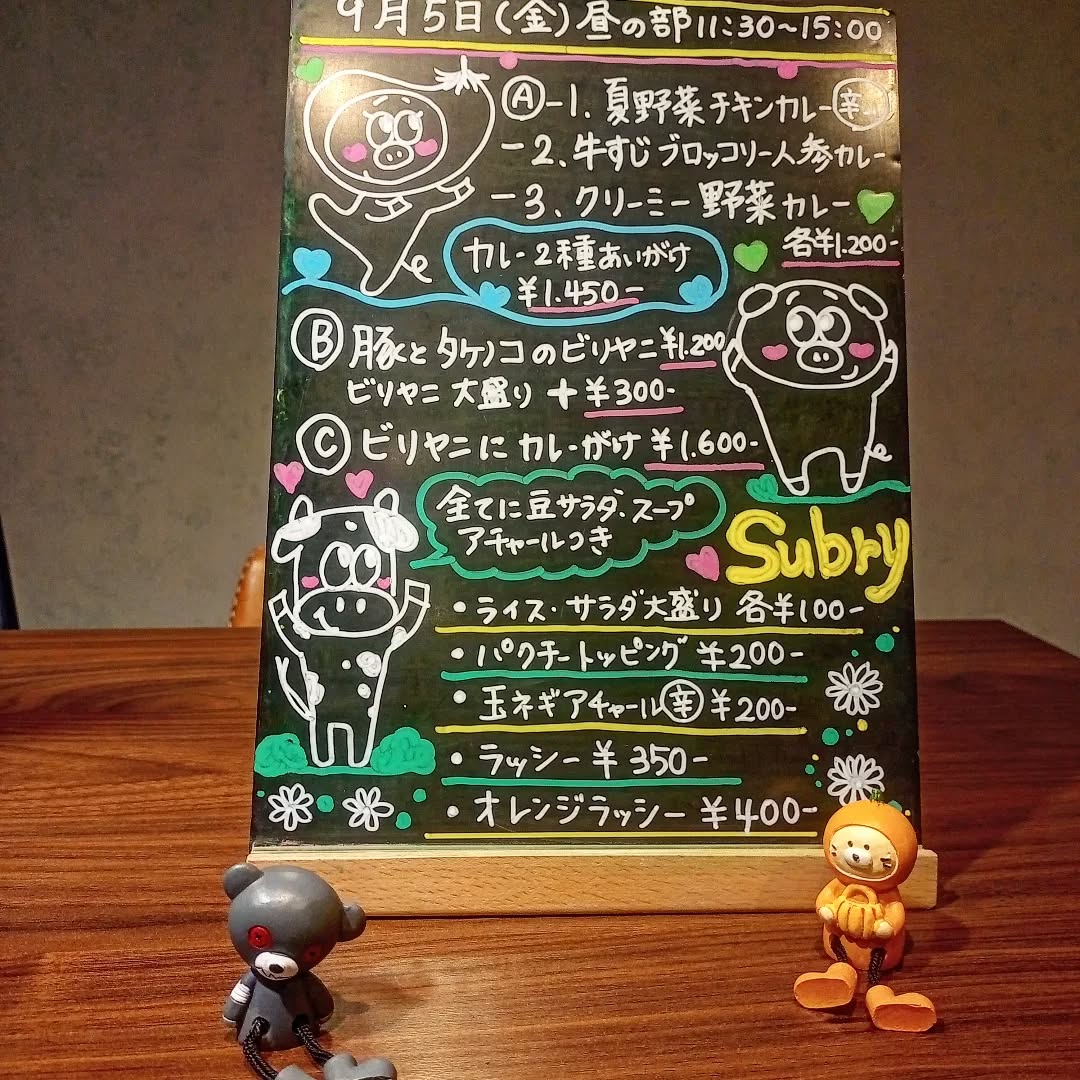 9月5日(金)昼の部11:30~15:00
Ⓐ-1. 夏野菜チキンカレー辛
-2、牛すじブロッコリー人参カレー
-3、クリーミー野菜カレー
各¥1.200-
カレー2種あいがけ
¥1.450-
Ⓑ豚とタケノコのビリヤニ¥1.200
ビリヤニ大盛り+¥300-
Ⓒビリヤニにカレーがけ ¥1.600-
全てに豆サラダ、スープ
アチャールつき
Subry
・ライス・サラダ大盛り 各¥100-
・パクチートッピング ¥200-
・玉ネギアチャール辛¥200-
・ラッシー ¥350-
・オレンジラッシー ¥400-